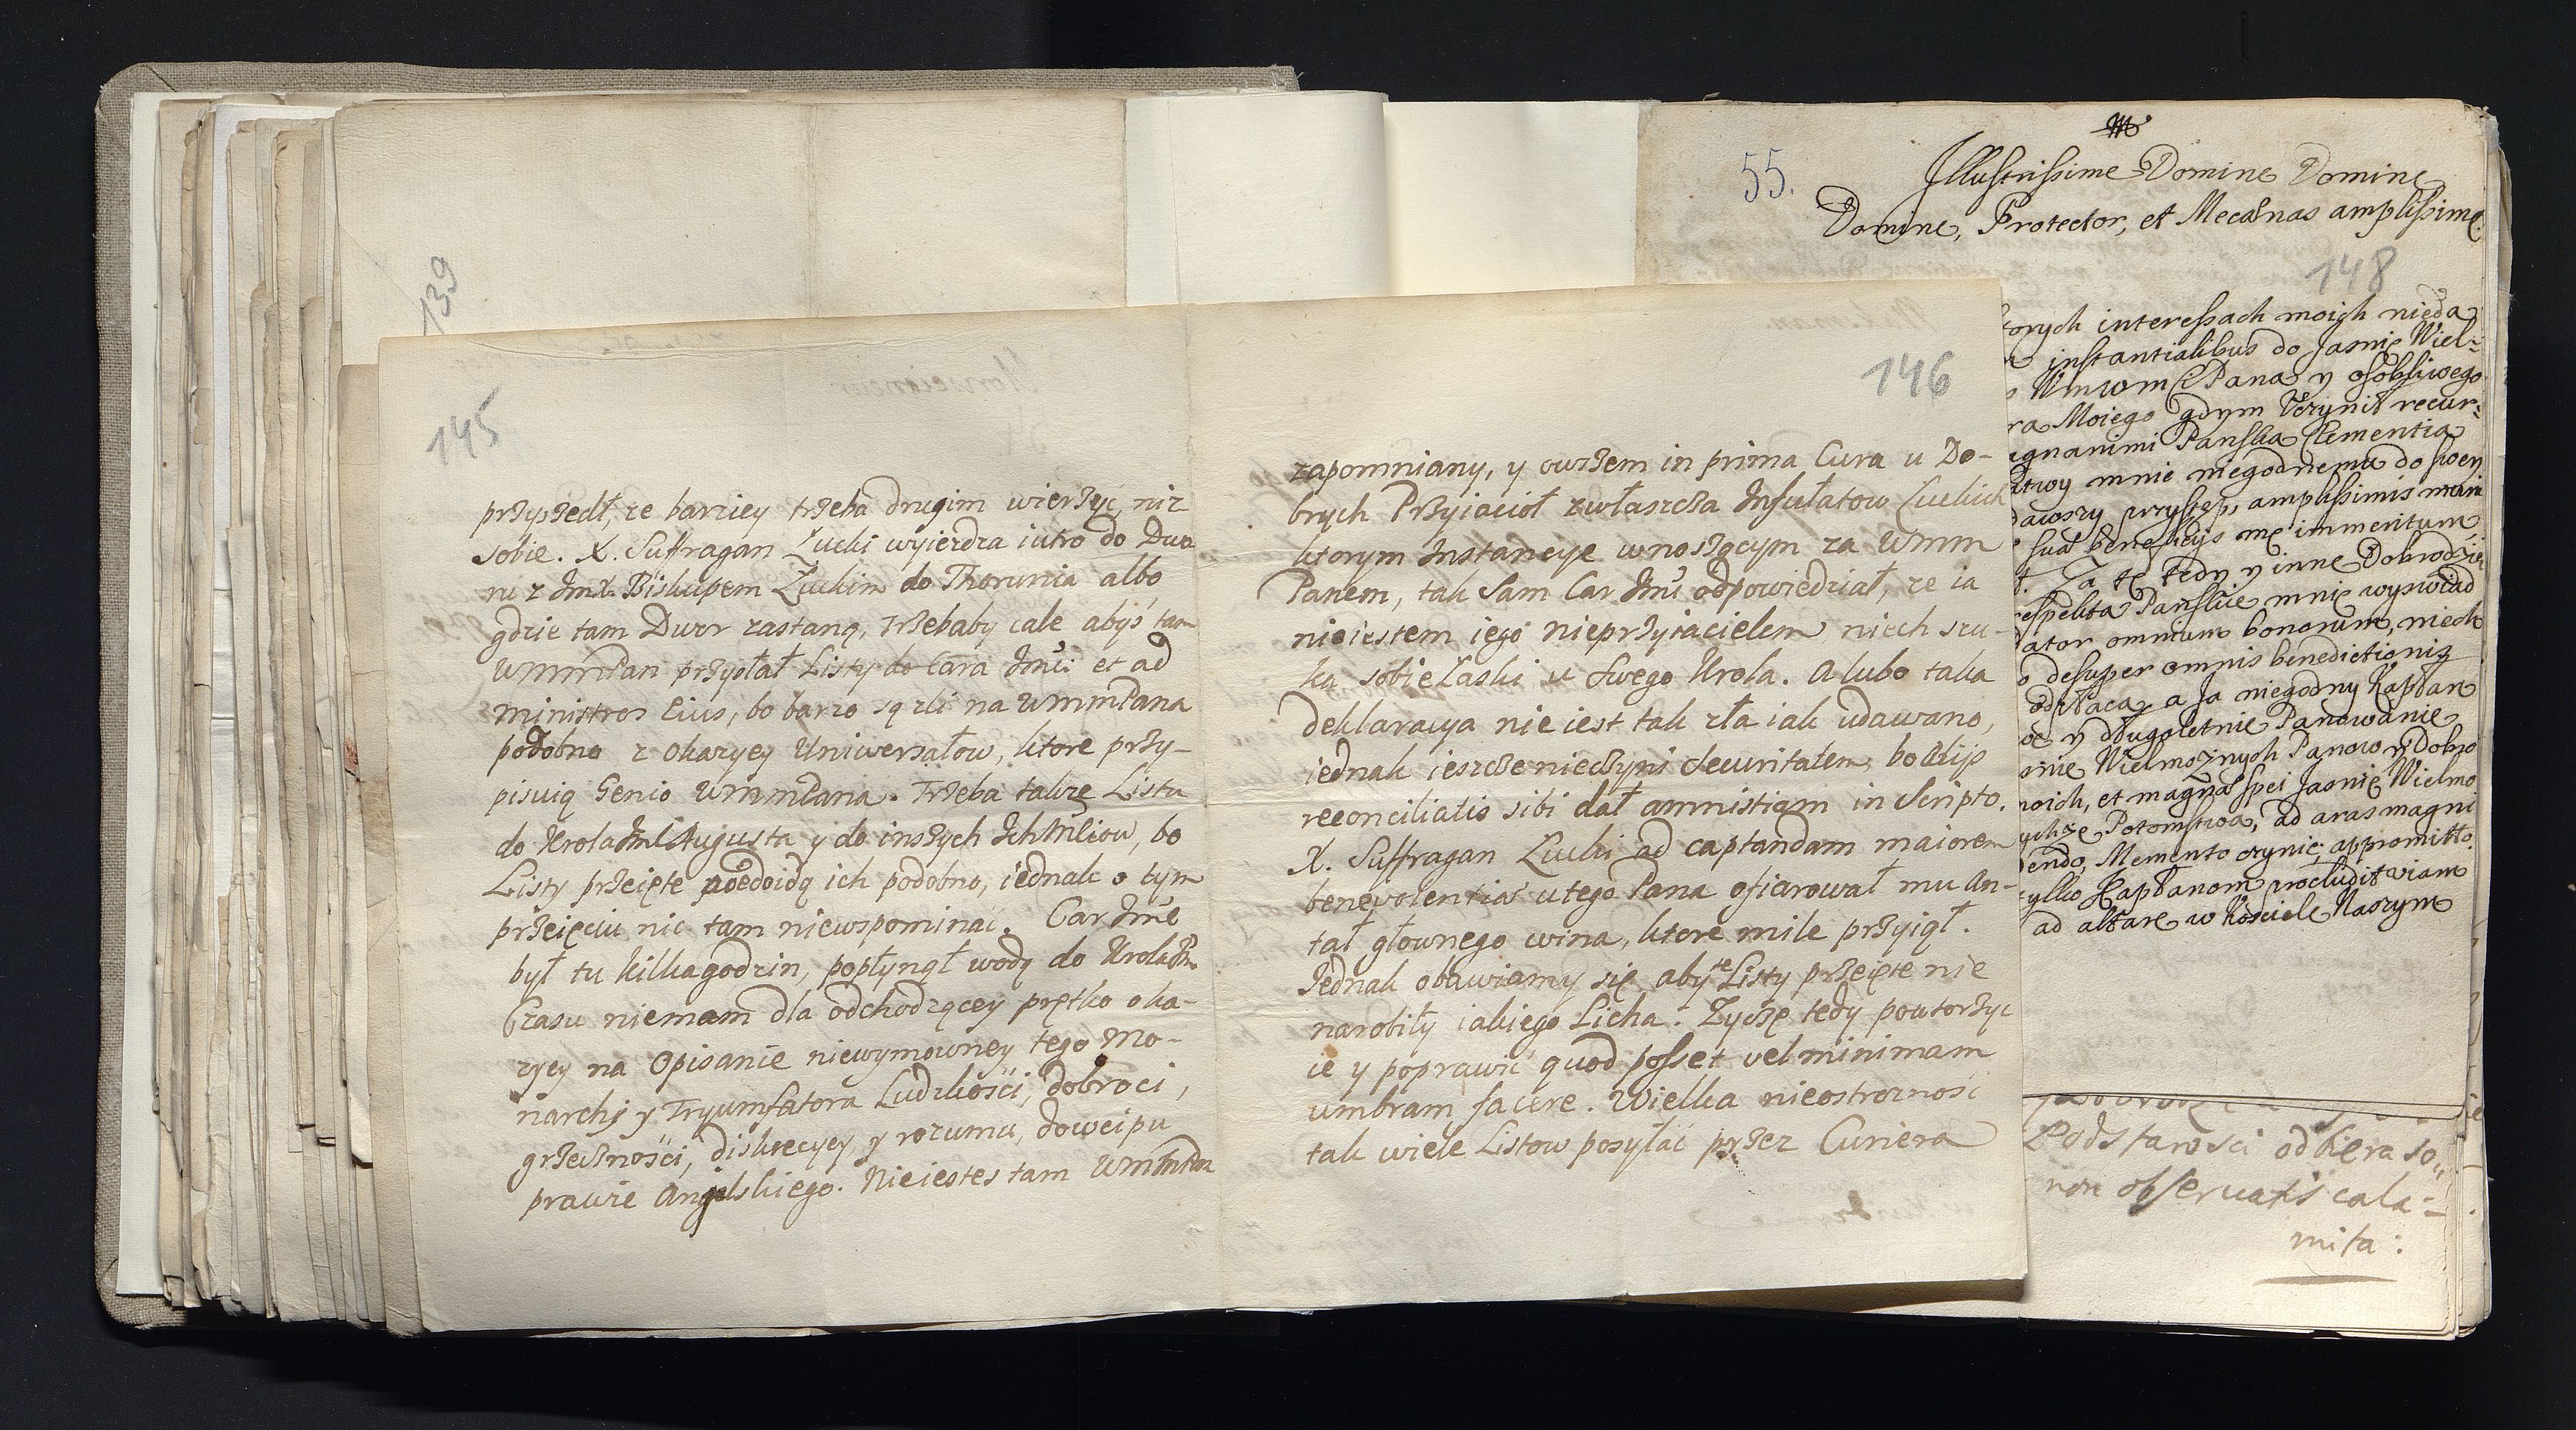 139
145
przyszedł, ze barziey trzeba drugim wierzyć, niz
sobie. X. Suffragan Łucki wyiezdza iutro do Dwo
ru z ImX. Biskupem Łuckim do Thorunia albo
gdzie tam Dwor zastaną, trzebaby cale abyś tam
WmmPan przysłał Listy do Cara Jmści et ad
ministros Eius, bo barzo są zli na WmmPana
podobno z okazyey Uniwersałow, ktore przy-
pisuią Genio WmmPana. Trzeba także Listu
do Krola Jmści Augusta y do inszych IchMściow, bo
Listy przeięte niedoidą ich podobno, iednak o tym
przeięciu nic tam niewspominać. Car Jmść
był tu kilka godzin, popłynął wodą do Krola Jm
Czasu niemam dla odchodzącey prętko oka-
zyey na Opisanie niewymowney tego Mo-
narchy y Tryumfatora Ludzkości, dobroci,
grzeczności, diskrecyey, y rozumu, dowcipu
prawie Angelskiego. Nieiestes tam WmmPan
146
zapomniany, y owszem in prima Cura u Do-
brych Przyiacioł zwłaszcza Infułatow Łuckich
ktorym Instancye wnoszącym za Wmm
Panem, tak Sam Car Jmść odpowiedział, ze ia
nieiestem iego nieprzyiacielem niech szu-
ka sobie Łaski u Swego Krola. A lubo taka
deklaracya nie iest tak zła iak udawano,
iednak ieszcze nieczyni Securitatem, bo aliis
reconciliatis sibi dał amnistiam in Scripto.
X. Suffragan Łucki ad captandam maiorem
benevolentia u tego Pana ofiarował mu An-
tał głownego wina, ktore mile przyiął.
Jednak obawiamy się aby te Listy przeięte nie
narobiły iakiego Licha. Zyczę tedy powtorzyc
ie y poprawić quod posset vel minimam
umbram facere. Wielka nieostroznosć
tak wiele Listow posyłać przez Curiera
55.
Illustrissime Domine Domine
Domine, Protector, et Mecænas amplissime.
148
torych interessach moich nieda
instantialibus do Jasnie Wiel-
Pana y osobliwego
ra Moiego gdym Uczynił recur-
agnanimi Pańska Clementia
mnie niegodnemu do swey
przystęp, amplissimis
sua beneficijs me immeritum
Za te tedy y inne Dobrodziey
respekta Pańskie mnie wyswiad
ator omnium bonorum, niech
desuper omnis benedictionis
odpłaca, a Ja niegodny Kapłan
y długoletnie Panowanie
snie Wielmoznych Panow y Dobro
moich, et magna spei Jasnie Wielmo
Potomstwa, ad aras magni
endo, Memento czynic, appromitto.
tylko Kapłanom viam
ad altare w Kosciele Naszym
Podstarosci odbiera so
non observatis cala-
mita: